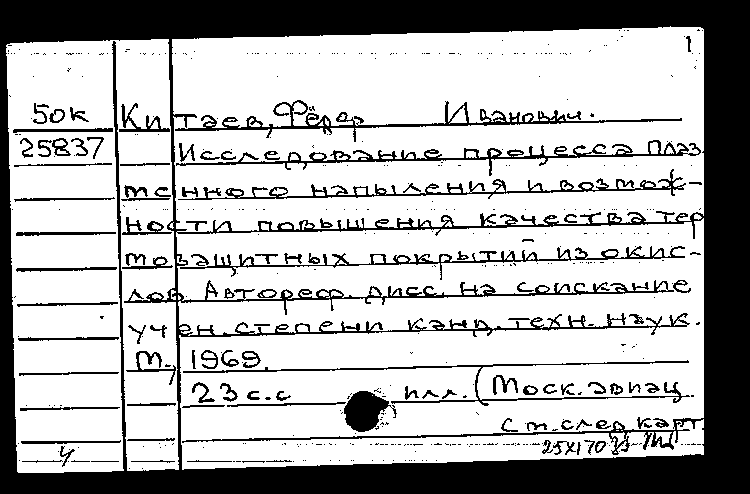 1
50к Китаев, Фёдор Иванович.
25837 Исследование процесса плаз
менного напыления и возмож-
ности повышения качества тер
мозащитных покрытий из окис-
лов. Автореф. дисс. на соискание
учен. степени канд. техн. наук.
М., 1969.
23 с. с илл. (Моск. авиац
См. след. карт.
25XI70